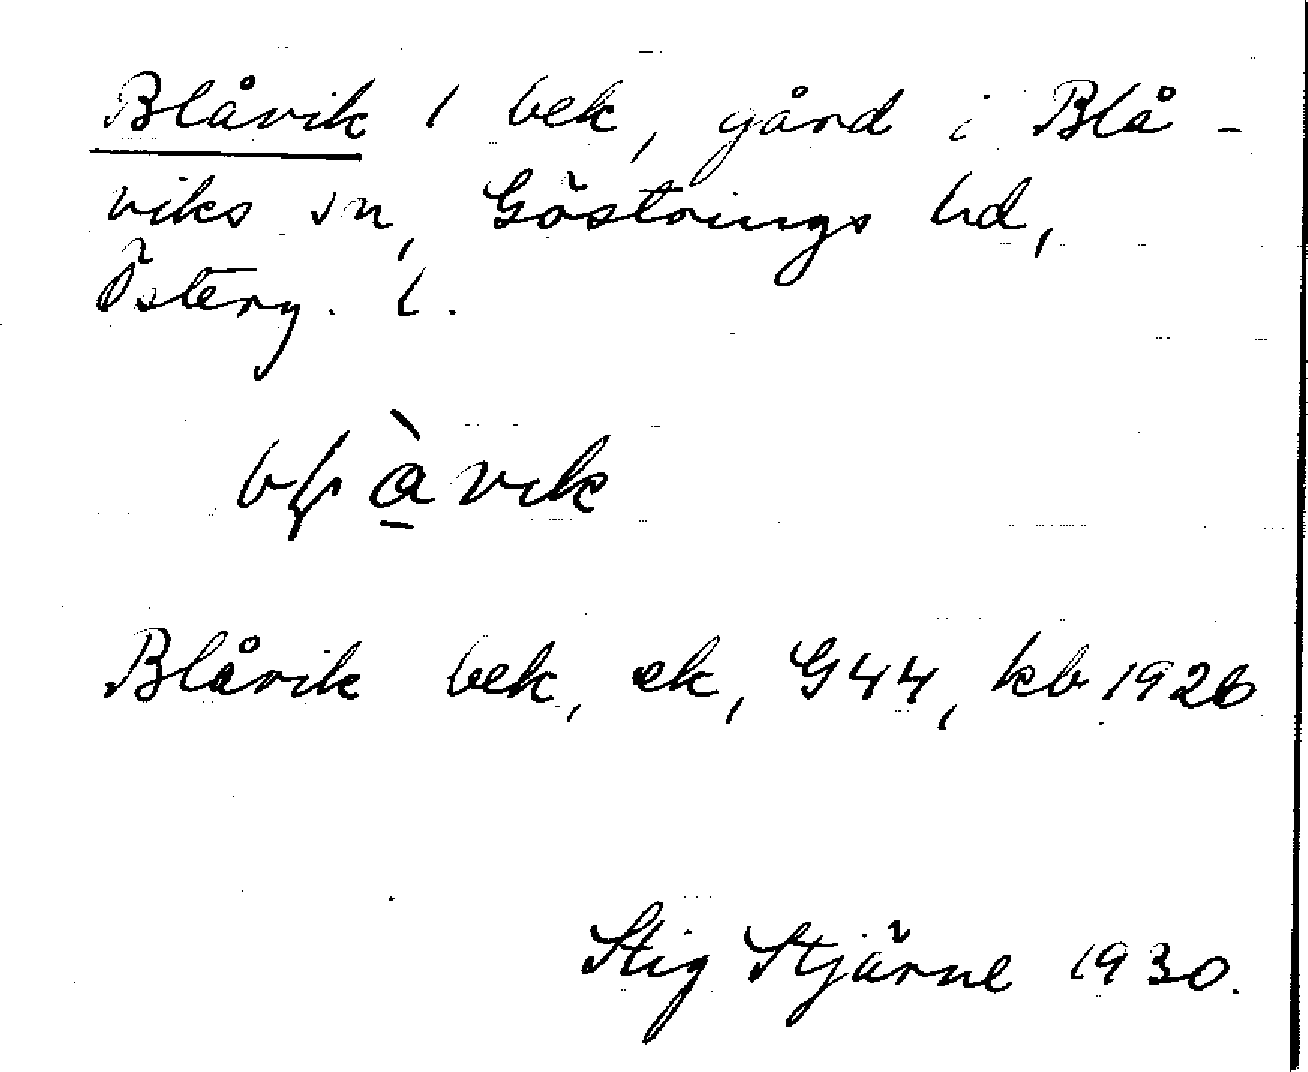 Blåvik 1 bek, gård i Blå-
viks sn, Göstrings hd,
Österg. l.
Blåvik bek, ek, G44, kb 1926
Stig Stjärne 1930.